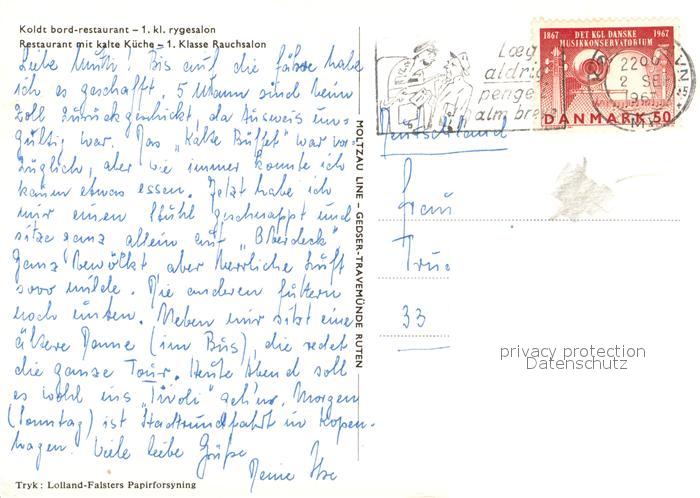 Koldt bord-restaurant – 1. kl. rygesalon
Restaurant mit kalte Küche – 1. Klasse Rauchsalon
Liebe Mutti! Bis auf die Fähre habe
ich es geschafft. 5 Mann sind beim
Zoll zurückgeschickt, da Ausweis un-
gültig war. Das „Kalte Buffet" war vor-
züglich, aber wie immer konnte ich
kaum etwas essen. Jetzt habe ich
mir einen Stuhl geschnappt und
sitze ganz allein auf „Oberdeck"
Ganz bewölkt aber herrliche Luft
sooo milde. Die anderen futtern
noch unten. Neben mir sitzt eine
ältere Dame (im Bus), die redet
die ganze Tour. Heute Abend soll
es wohl ins „Tivoli" geh'n. Morgen
(Sonntag) ist Stadtrundfahrt in Kopen-
hagen. Viele liebe Grüße
Deine Ilse
Tryk: Lolland-Falsters Papirforsyning
MOLTZAU LINE – GEDSER-TRAVEMÜNDE RUTEN
Læg
aldrig
penge i
alm brev
1867 DET KGL DANSKE 1967
MUSIKKONSERVATORIUM
DANMARK 50
2 SE
Deutschland
Frau
33
privacy protection
Datenschutz